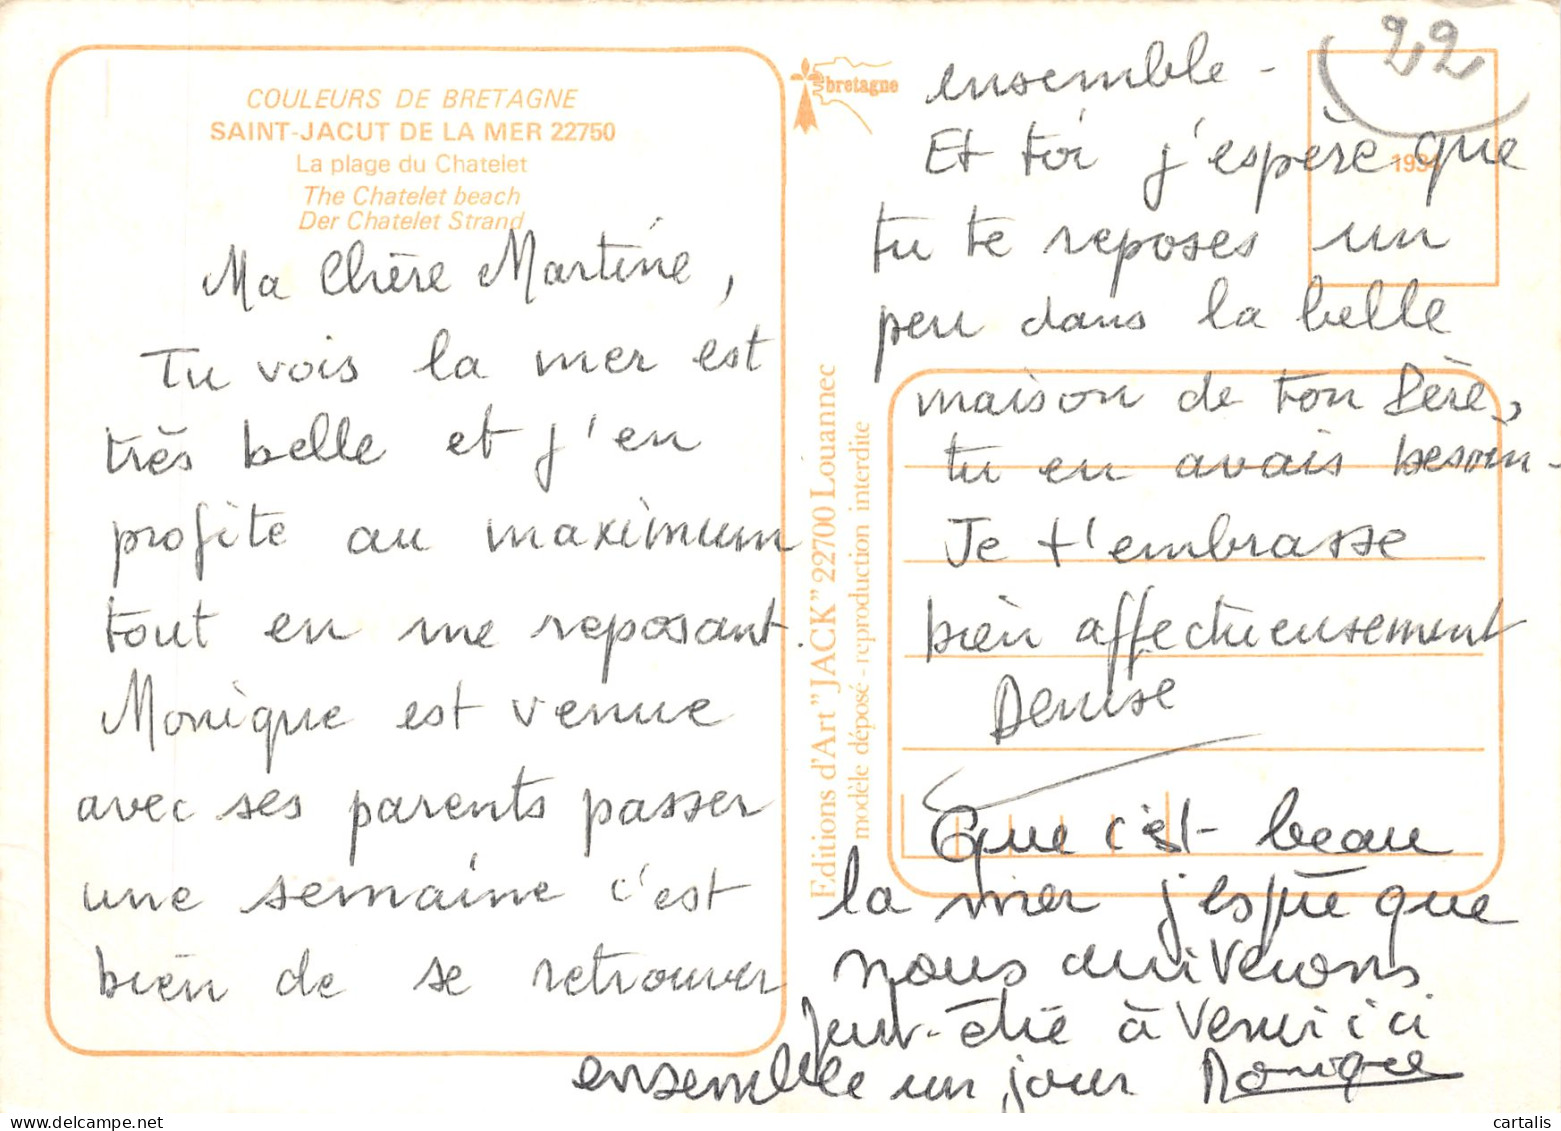 COULEURS DE BRETAGNE
SAINT-JACUT DE LA MER 22750
La plage du Chatelet
The Chatelet beach
Der Chatelet Strand
Ma Chère Martine,
Tu vois la mer est
très belle et j'en
profite au maximum
tout en me reposant.
Monique est venue
avec ses parents passer
une semaine c'est
bien de se retrouver
bretagne
Editions d'Art "JACK" 22700 Louannec
modèle déposé - reproduction interdite
22
1934
ensemble -
Et toi j'espère que
tu te reposes un
peu dans la belle
maison de ton Père,
tu en avais besoin -
Je t'embrasse
bien affectueusement
Denise
Que c'est beau
la mer j'espère que
nous arriverons
peut-être à venir ici
ensemble un jour Monique
cartalis